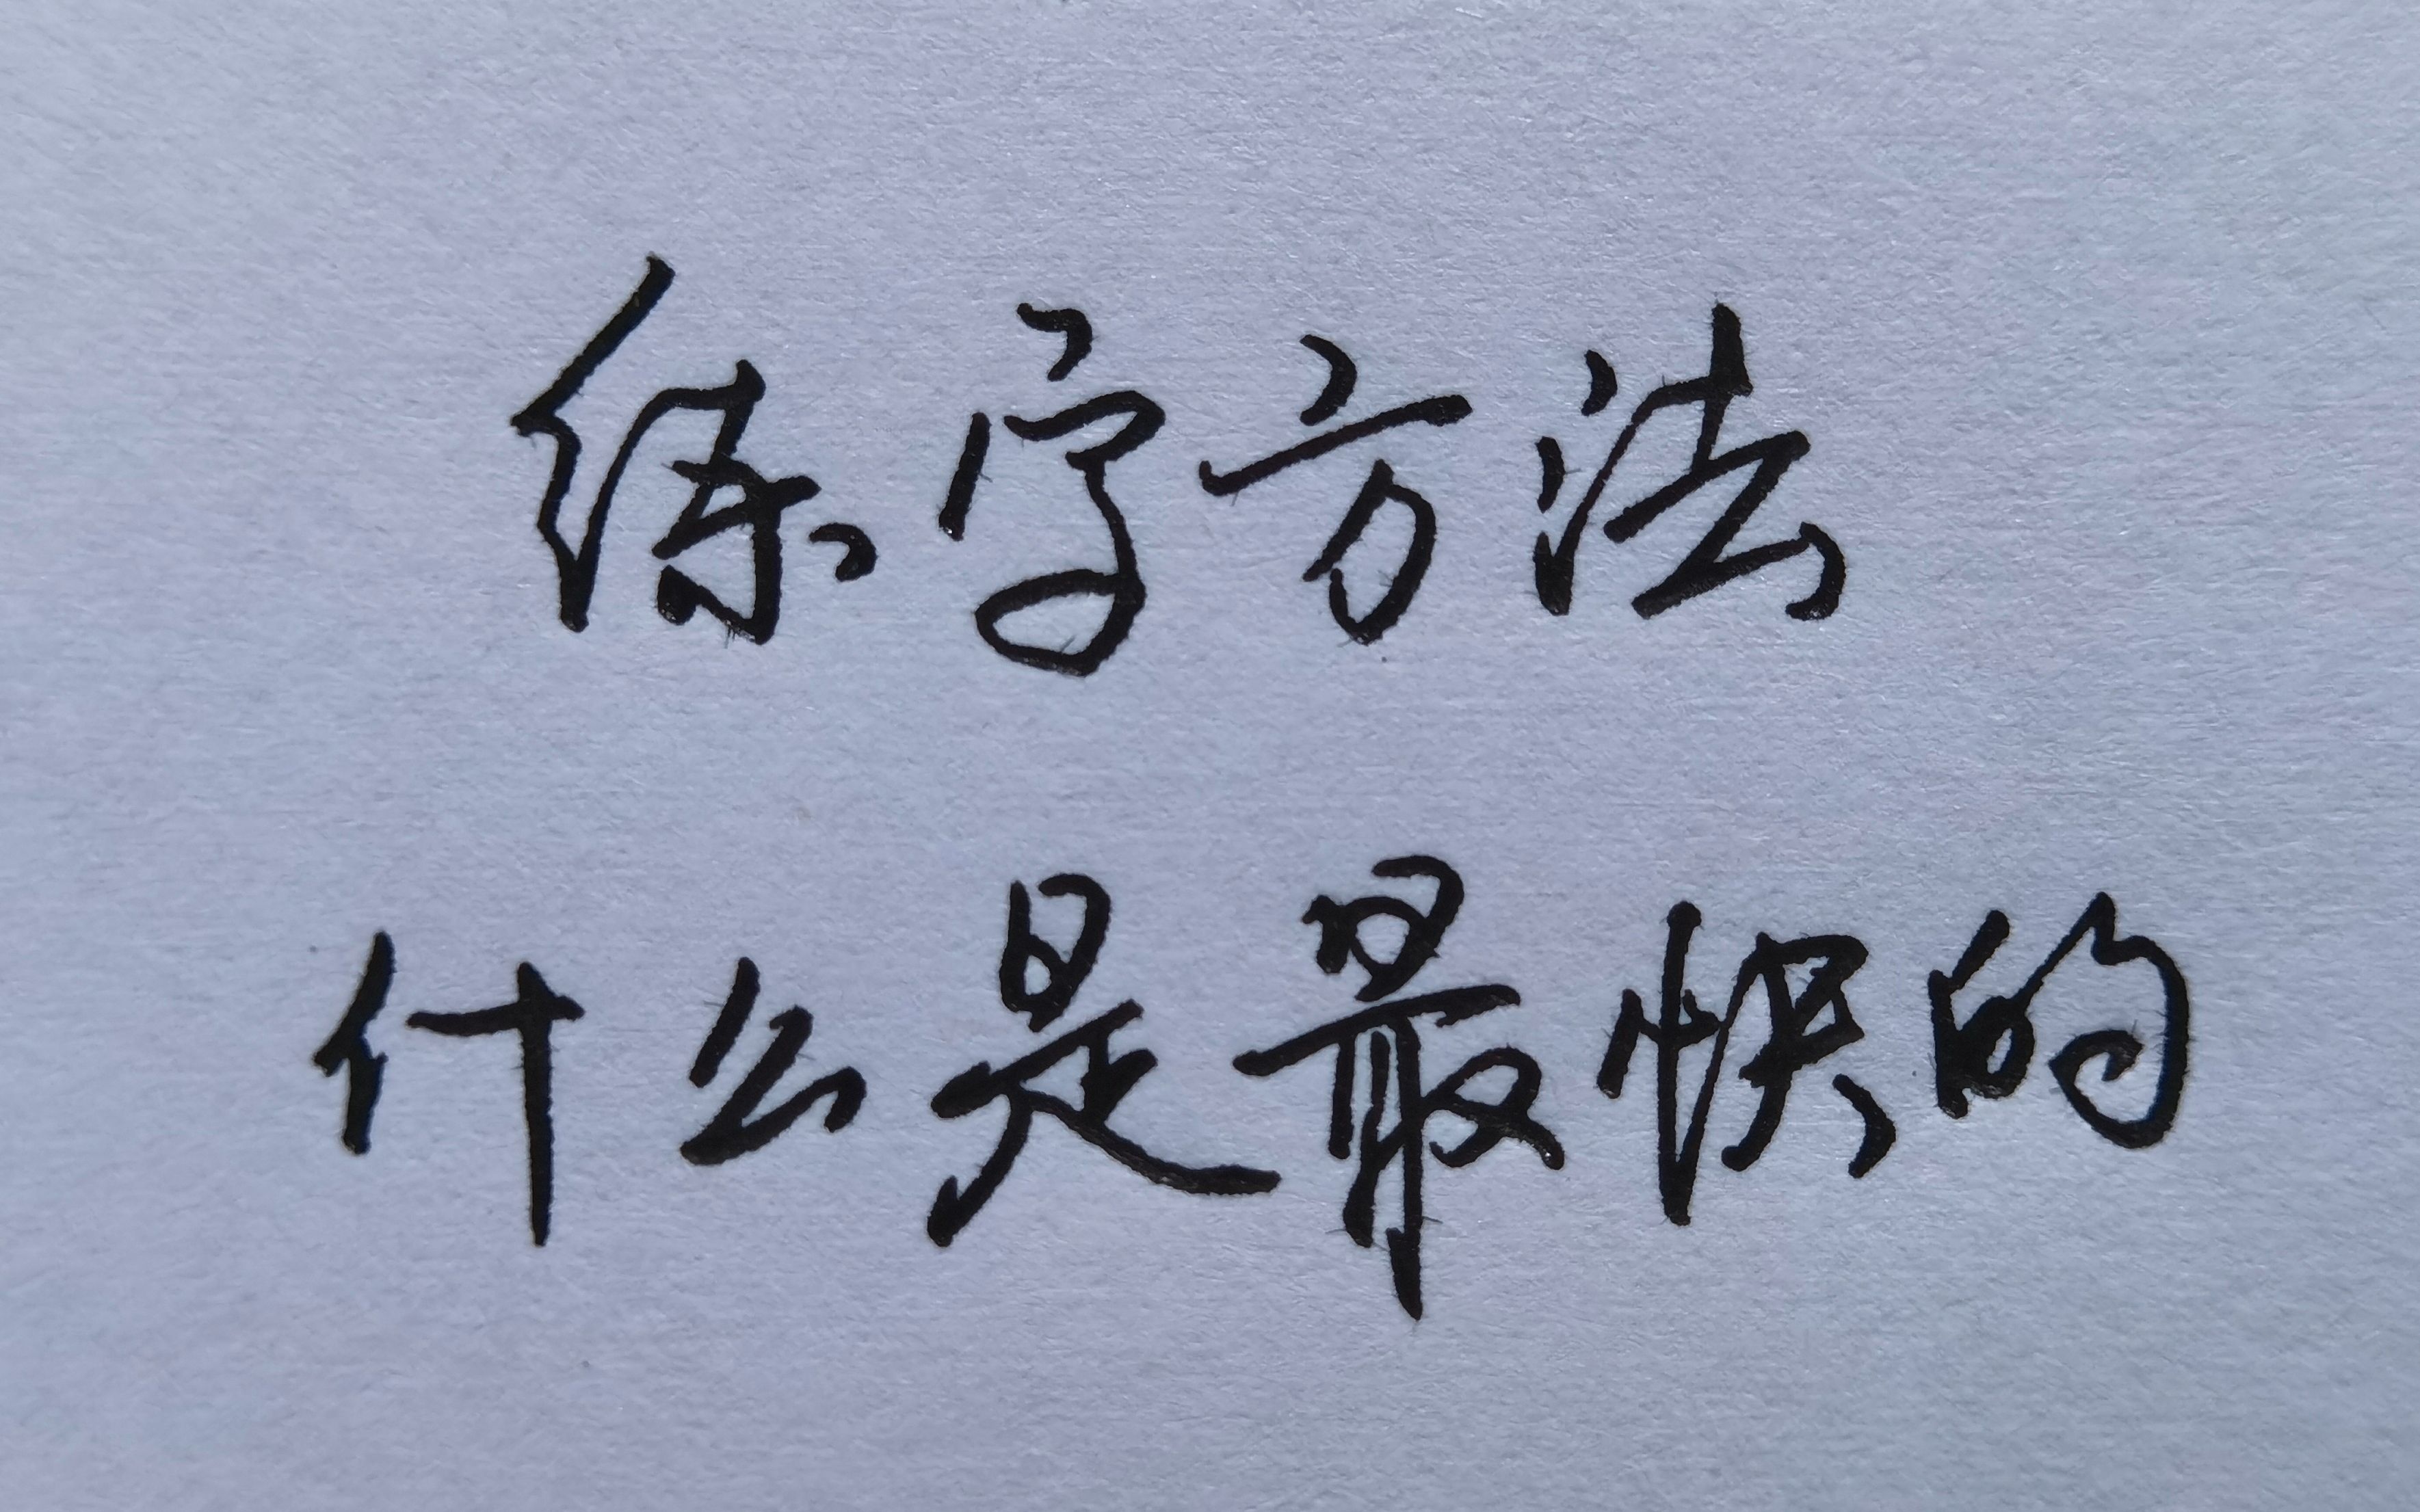 练字方法
什么是最快的